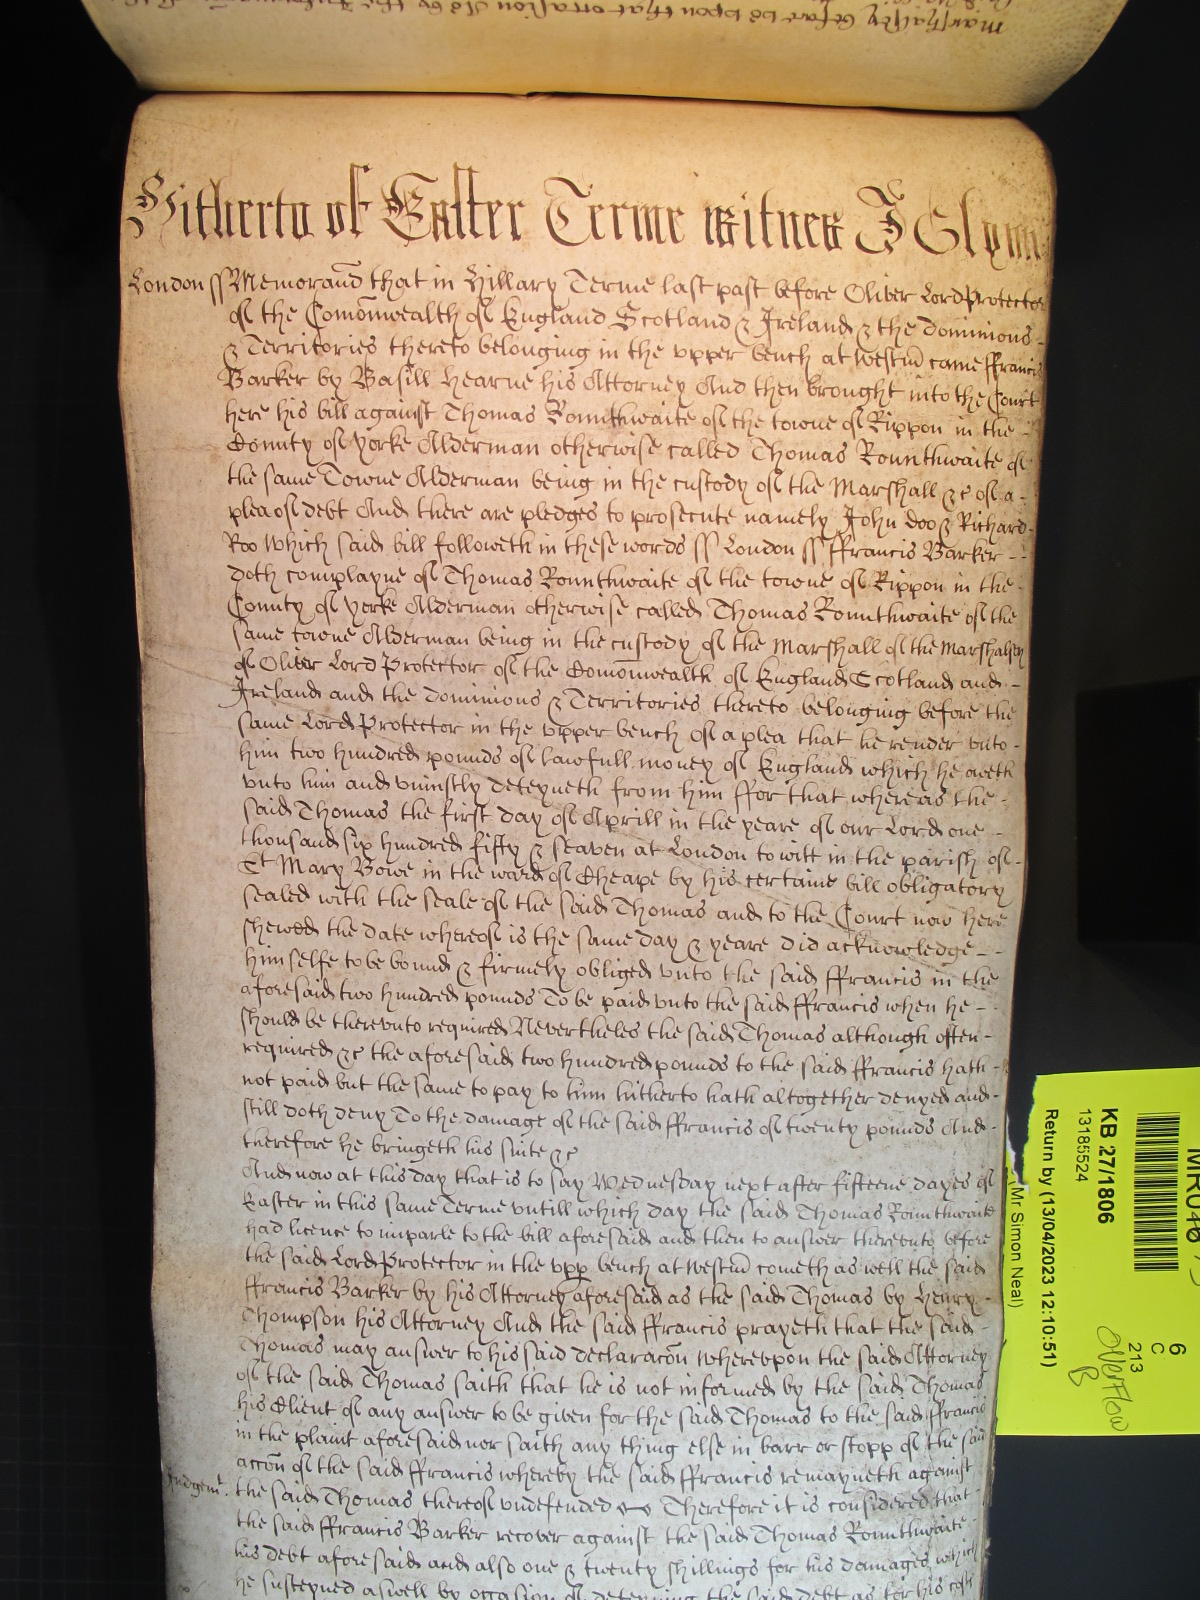 Marshalsey before
upon that occasion
Hitherto of Easter Terme witnes J Glynn
London ss Memorand that in Hillary Terme last past before Oliver Lord Protector
of the Comonwealth of England Scotland & Ireland & the dominions
& Territories thereto belonging in the upper bench at Westm came ffrancis
Barker by Basill Hearne his Attorney And then brought into the Court
here his bill against Thomas Rounthwaite of the towne of Rippon in the
County of Yorke Alderman otherwise called Thomas Rounthwaite of
the same Towne Alderman being in the custody of the Marshall &c of a
plea of debt And there are pledges to prosecute namely John Doo & Richard
Roo Which said bill followeth in these words ss London ss ffrancis Barker
doth complayne of Thomas Rounthwaite of the towne of Rippon in the
County of Yorke Alderman otherwise called Thomas Rounthwaite of the
same towne Alderman being in the custody of the Marshall of the Marshalsey
of Oliver Lord Protector of the Comonwealth of England Scotland and
Ireland and the dominions & Territories thereto belonging before the
same Lord Protector in the upper bench of a plea that he render unto
him two hundred pounds of lawfull money of England which he oweth
unto him and uniustly deteyneth from him ffor that whereas the
said Thomas the first day of Aprill in the yeare of our Lord one
thousand six hundred fifty & seaven at London to witt in the parish of
St Mary Bowe in the ward of Cheape by his certaine bill obligatory
sealed with the seale of the said Thomas and to the Court now here
shewed the date whereof is the same day & yeare did acknowledge
himselfe to be bound & firmely obliged unto the said ffrancis in the
aforesaid two hundred pounds To be paid unto the said ffrancis when he
should be thereunto required Nevertheles the said Thomas although often
required &c the aforesaid two hundred pounds to the said ffrancis hath
not paid but the same to pay to him hitherto hath altogether denyed and
still doth deny To the damage of the said ffrancis of twenty pounds And
therefore he bringeth his suite &c
And now at this day that is to say Wednesday next after fifteene dayes of
Easter in this same Terme untill which day the said Thomas Rounthwaite
had licence to imparle to the bill aforesaid and then to answer thereunto before
the said Lord Protector in the upp bench at Westm cometh as well the said
ffrancis Barker by his Attorney aforesaid as the said Thomas by Henry
Thompson his Attorney And the said ffrancis prayeth that the said
Thomas may answer to his said declaracon Whereupon the said Attorney
of the said Thomas saith that he is not informed by the said Thomas
his Client of any answer to be given for the said Thomas to the said ffrancis
in the plaint aforesaid nor saith any thing else in barr or stopp of the said
accon of the said ffrancis whereby the said ffrancis remayneth against
Judgemt. the said Thomas thereof undefended Therefore it is considered that
the said ffrancis Barker recover against the said Thomas Rounthwaite
his debt aforesaid and also one & twenty shillings for his damages which
he susteyned aswell by occasion of deteyning the said debt as for his costs
KB 27/1806
13185524
Return by (13/04/2023 12:10:51)
(Mr Simon Neal)
6
C
213
Overflow
B